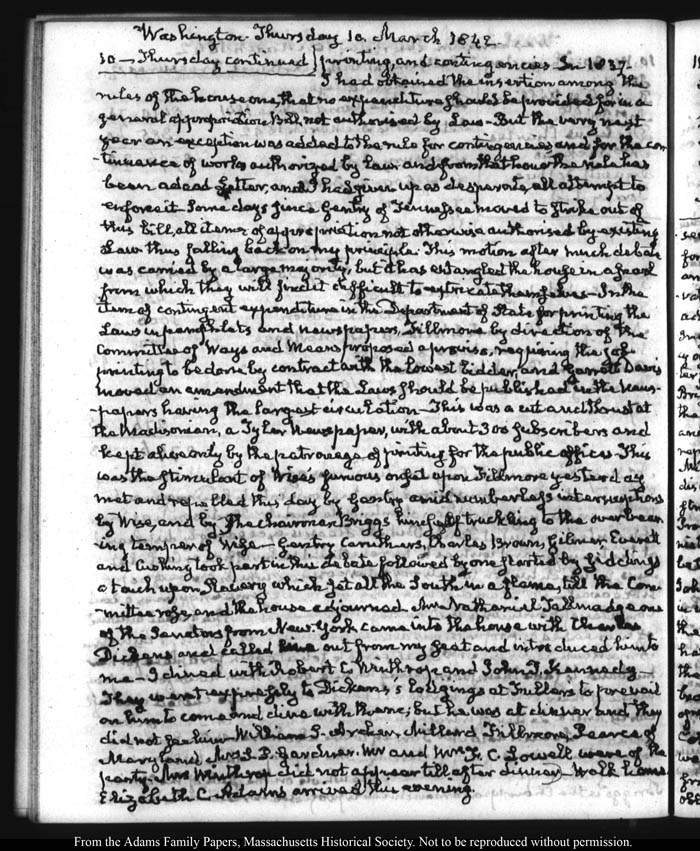 Washington Thursday 10. March 1842
10 — Thursday continued) printing, and contingencies. In 1837
I had obtained the insertion among the
rules of the house one, that no expenditure should be provided for in a
general appropriation Bill, not authorised by Law — But the very next
year an exception was added to the rule for contingencies and for the con-
-tinuance of works authorized by Law and from that hour the rule has
been a dead Letter, and I had given up as desperate all attempt to
enforce it. Some days since Gentry of Tennessee moved to strike out of
this bill, all items of appropriation not otherwise authorised by existing
Law thus falling back on my principle. This motion after much debate
was carried by a large majority, but it has entangled the house in a
from which they will find it difficult to extricate themselves — In the
item of contingent expenditure in the Department of State for printing the
Laws in pamphlets and newspapers, Fillmore by direction of the
Committee of Ways and Means proposed a proviso, requiring the job
printing to be done by contract with the lowest bidder, and Garrett Davis
moved an amendment that the Laws should be published in the News-
-papers having the largest circulation — This was a cut and thrust at
the Madisonian, a Tyler Newspaper, with about 300 subscribers and
kept alive only by the patronage of printing for the public offices. This
was the stimulant of Wise's furious onset upon Fillmore yesterday
met and repelled this day by Gentry amid numberless interruptions
by Wise, and by the chairman Briggs himself truckling to the overbear-
ing temper of Wise — Gentry Caruthers, Charles Brown, Gilmer Everett
and Cushing took part in this debate followed by one started by Giddings
a touch upon Slavery which set all the South in a flame, till the Com-
-mittee rose, and the house adjourned. Mr Nathaniel Tallmadge one
of the Senators from New-York came into the house with Charles
Dickens and called me out from my seat and introduced him to
me — I dined with Robert C. Winthrop and John P. Kennedy
They went expressly to Dickens's lodgings at Fullers to prevail
on him to come and dine with them; but he was at dinner and they
did not see him. William S. Archer, Millard Fillmore, Pearce of
Maryland Mrs L. D. Gardiner. Mr and Mrs F. C. Lowell were of the
party. Mrs Winthrop did not appear till after dinner — Walk home
Elizabeth C. Adams arrived this evening.
From the Adams Family Papers, Massachusetts Historical Society. Not to be reproduced without permission.